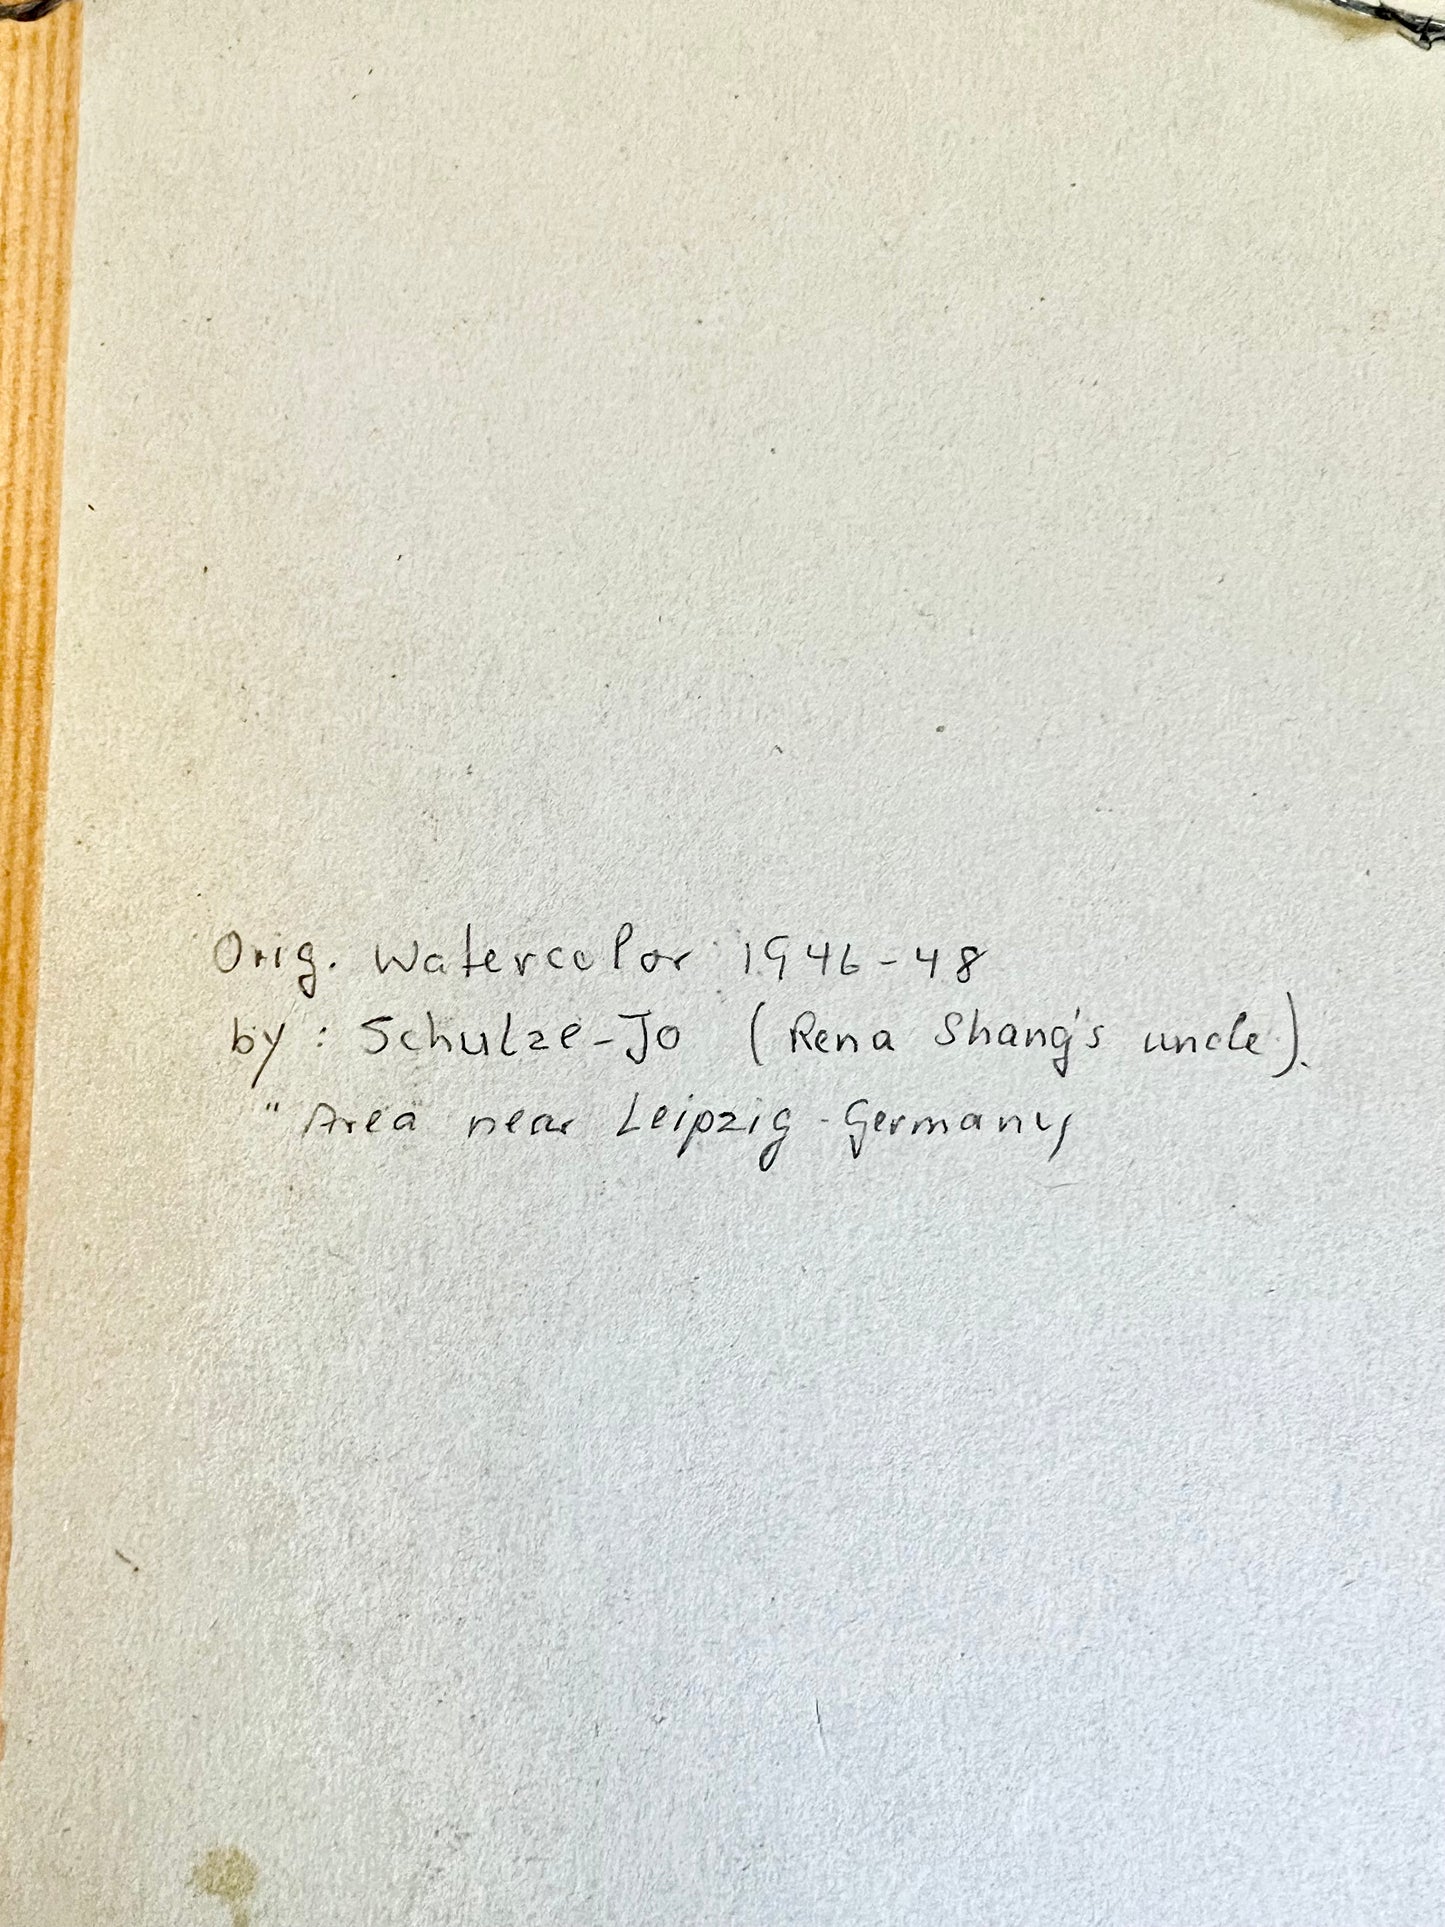 Orig. Watercolor 1946-48
by: Schulze-Jo (Rena Shang's uncle).
"Area near Leipzig-Germany